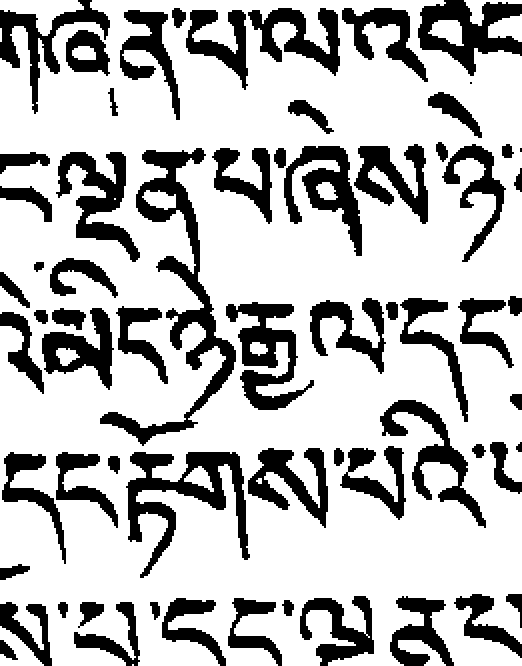 གཞན་པ་ལ་འབ
ང་ལྡན་པ་ཞེས་ཉེ་
འི་མིང་ཉེ་རྒྱལ་དང་
དང་རྟོགས་པའི་
ས་པ་དང་ལྡན་པ